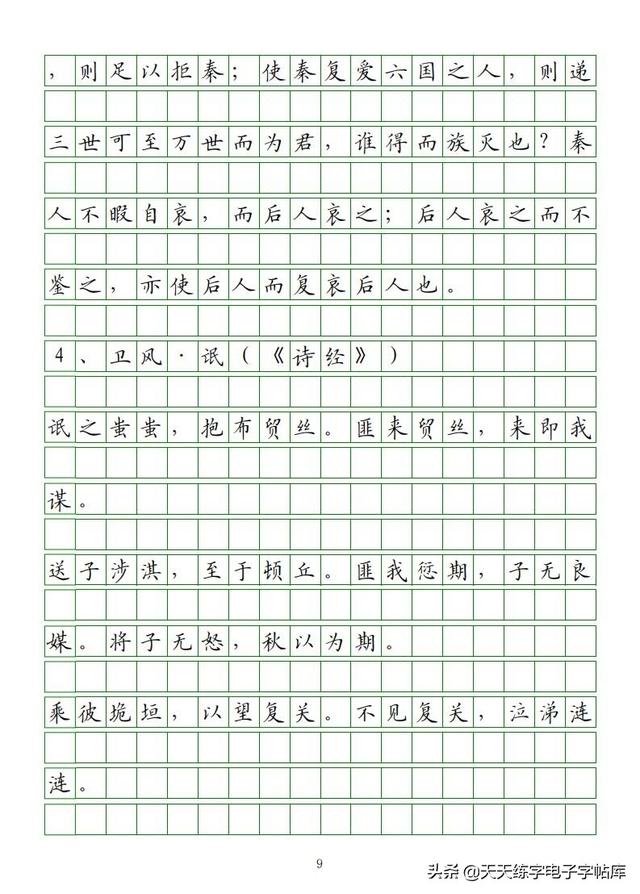 ，则足以拒秦；使秦复爱六国之人，则递
三世可至万世而为君，谁得而族灭也？秦
人不暇自哀，而后人哀之；后人哀之而不
鉴之，亦使后人而复哀后人也。
4、卫风·氓（《诗经》）
氓之蚩蚩，抱布贸丝。匪来贸丝，来即我
谋。
送子涉淇，至于顿丘。匪我愆期，子无良
媒。将子无怒，秋以为期。
乘彼垝垣，以望复关。不见复关，泣涕涟
涟。
9
头条@天天练字电子字帖库